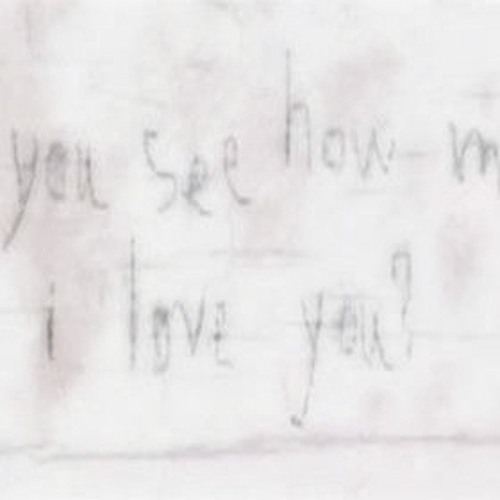 you see how m
i love you?